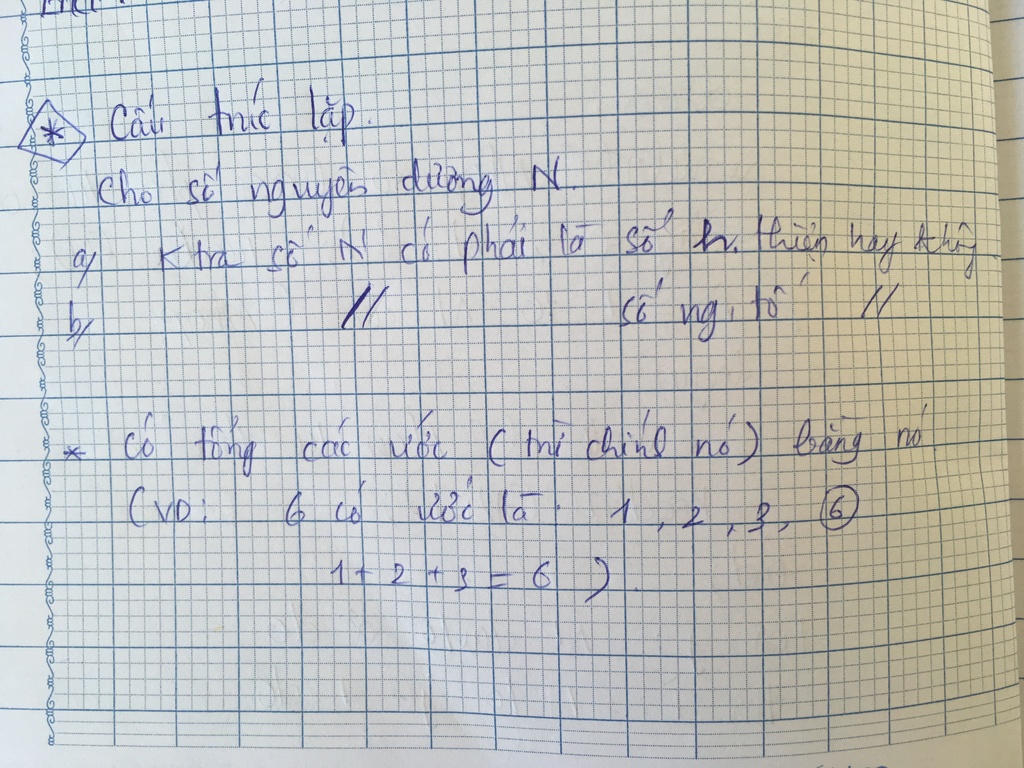 * Cấu trúc lặp.
Cho số nguyên dương N.
a) Ktra số N có phải là số h. thiện hay không
b) // số ng. tố //
* Có tổng các ước (trừ chính nó) bằng nó
(VD: 6 có ước là 1, 2, 3, 6
1 + 2 + 3 = 6 ).